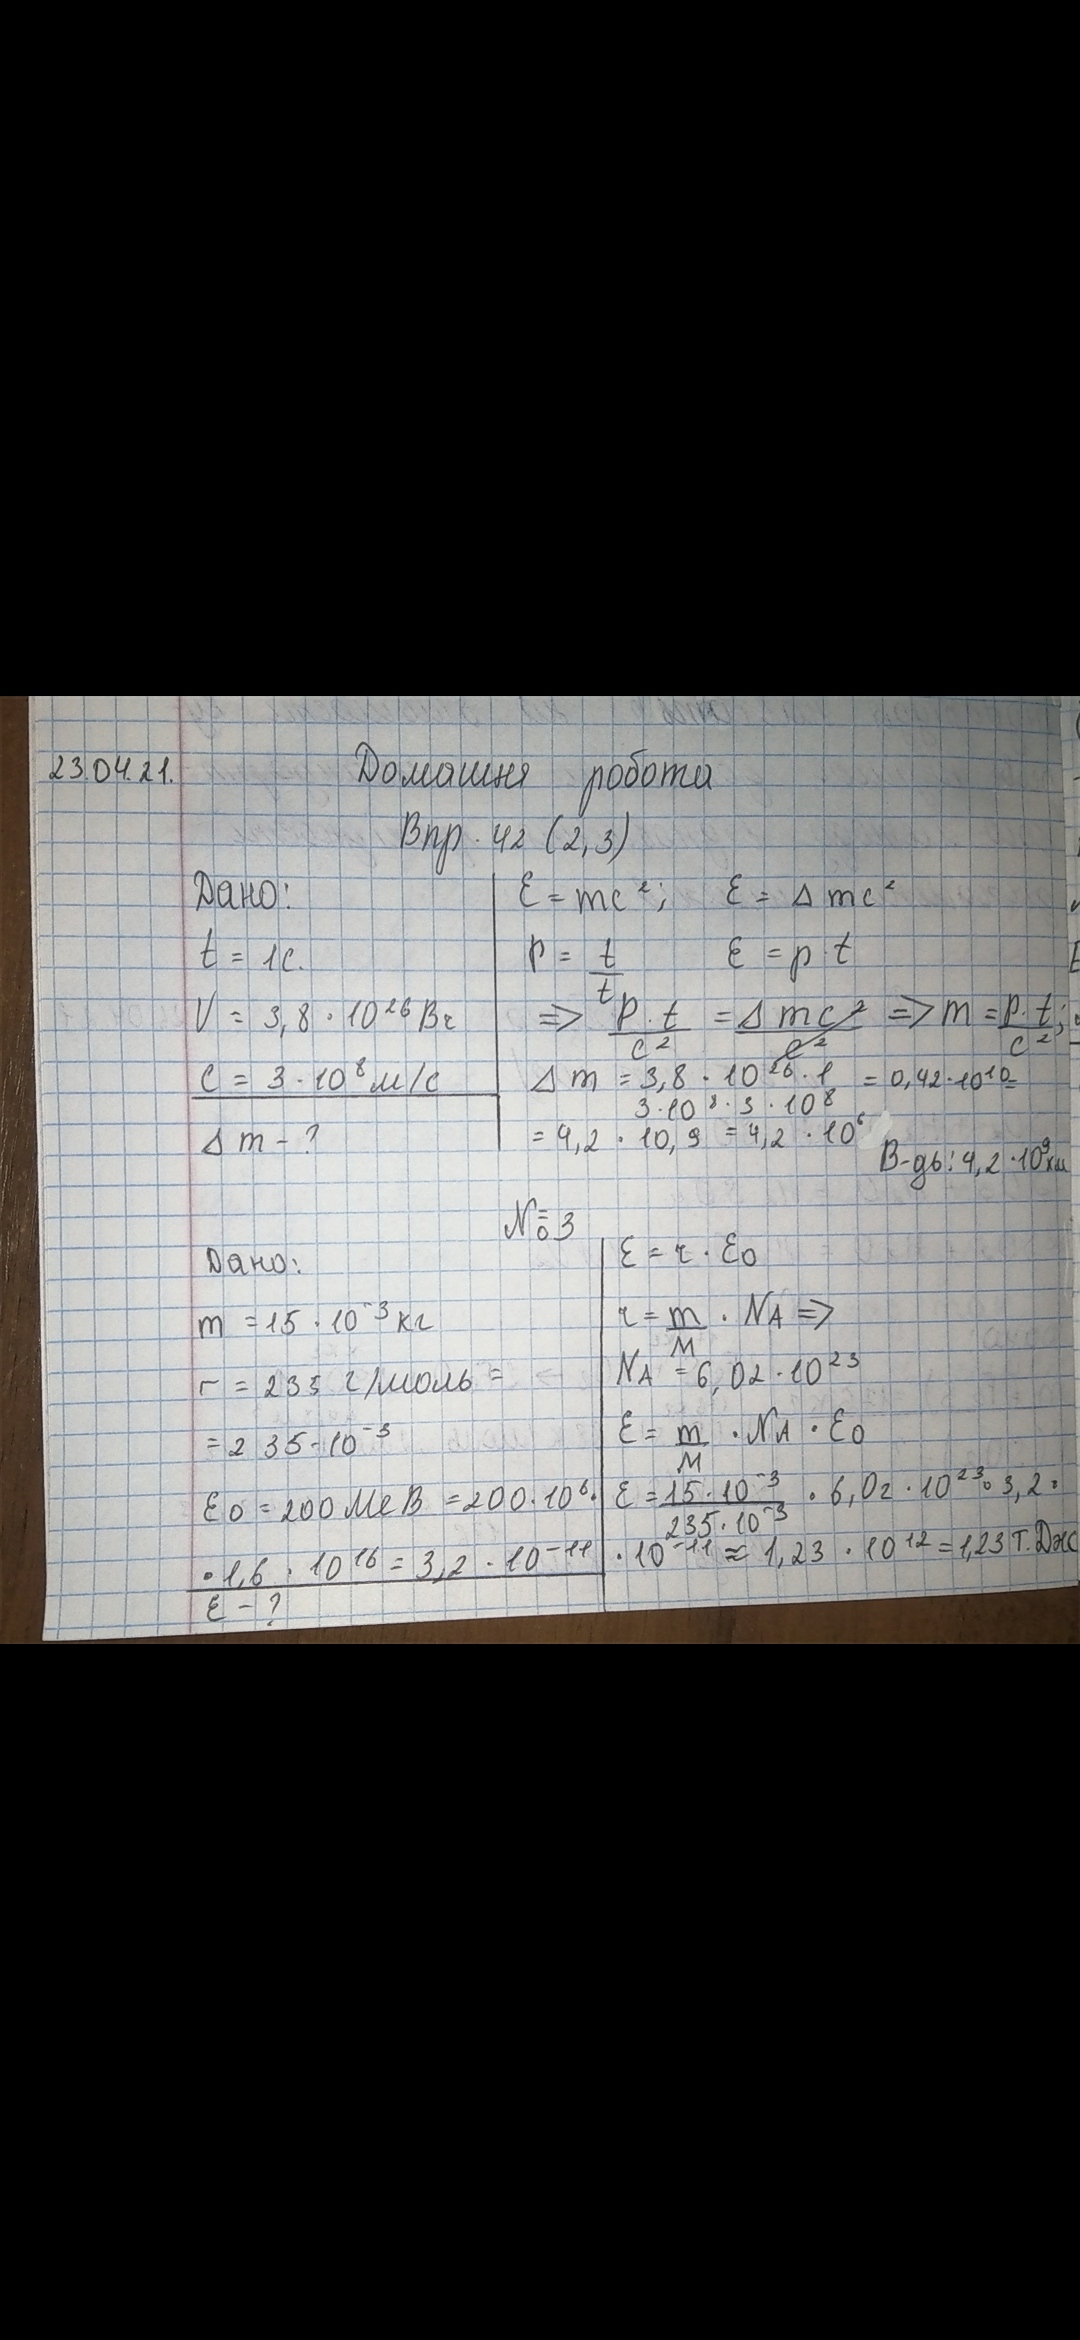 23.04.21. Домашня робота
Впр. 42 (2,3)
Дано:
t = 1с.
V = 3,8 · 10²⁶ Вт
c = 3 · 10⁸ м/с
Δm - ?
E = mc²; E = Δmc²
P = t/t E = p·t
=> P·t/c² = Δmc²/c² => m = P·t/c²;
Δm = 3,8 · 10²⁶ · 1 / 3·10⁸ · 3 · 10⁸ = 0,42·10¹⁰ =
= 4,2 · 10,9 = 4,2 · 10⁶
В-дь: 4,2 · 10⁹ км
№3
Дано:
m = 15 · 10⁻³ кг
r = 235 г/моль =
= 235 · 10⁻³
E₀ = 200 МеВ = 200·10⁶ ·
· 1,6 · 10¹⁶ = 3,2 · 10⁻¹¹
E - ?
E = r · E₀
r = m/M · NA =>
NA = 6,02 · 10²³
E = m/M · NA · E₀
E = 15·10⁻³/235·10⁻³ · 6,02 · 10²³ · 3,2 ·
· 10⁻¹¹ ≈ 1,23 · 10¹² = 1,23 Т.Дж